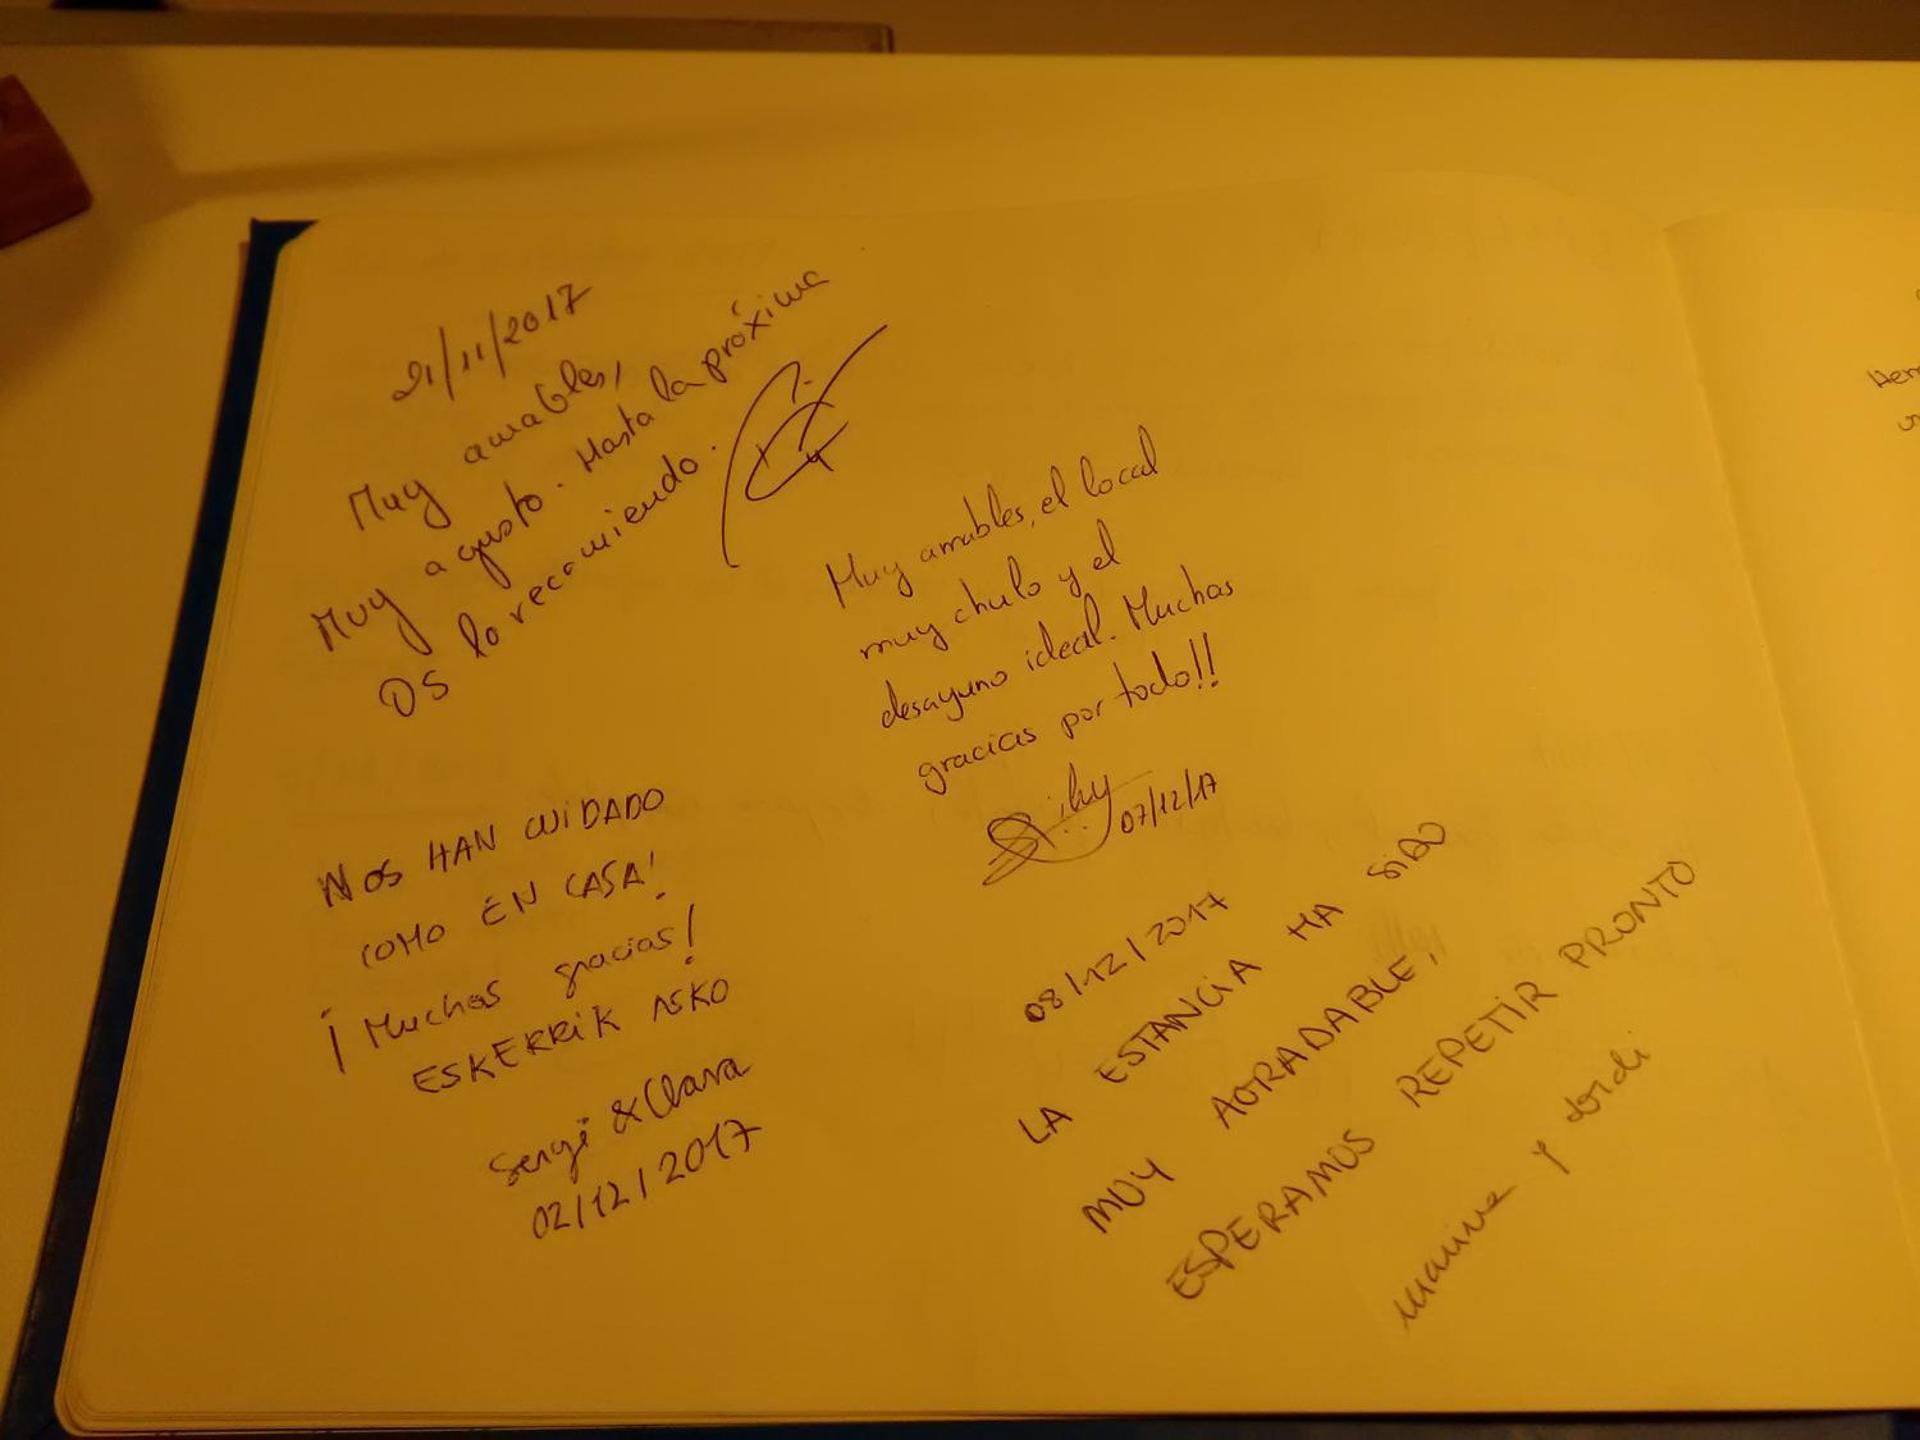 21/11/2017
Muy amables,
Muy a gusto. Hasta la próxima
OS lo recomiendo.
NOS HAN CUIDADO
COMO EN CASA!
¡Muchas gracias!
ESKERRIK ASKO
Sergi & Clara
02/12/2017
Muy amables, el local
muy chulo y el
desayuno ideal. Muchas
gracias por todo!!
07/12/17
08/12/2017
LA ESTANCIA HA SIDO
MUY AGRADABLE,
ESPERAMOS REPETIR PRONTO
Marina y Jordi